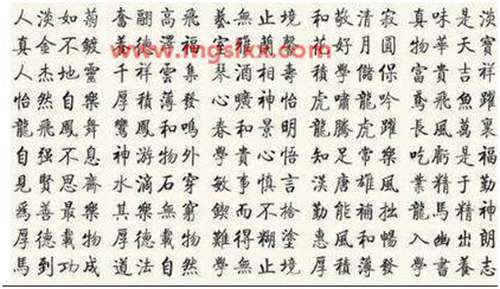 人淡如菊 奮翮高飛 藝無止境 和敬清寂 真味是淡
真金不鍍 善德澤福 室雅蘭馨 花好月圓 物華天寶
www.mgsfxx.com
人杰地靈 千祥雲集 琴酒相壽 積學儲保 富貴吉祥
怡然自樂 厚積薄發 心曠神怡 虎嘯龍吟 鳶飛魚躍
龍飛鳳舞 鸞鳳和鳴 春和景明 龍騰虎躍 長風萬裏
自强不息 神游物外 和貴心悟 知足常樂 吃虧是福
見賢思齋 水滴石穿 敏事慎言 漢唐雄風 業精于勤
為善最樂 其樂無窮 鍥而不捨 勤能補拙 龍馬精神
厚德載物 厚德載物 難得糊塗 惠風和暢 入幽出朗
馬到功成 道法自然 學無止境 厚積薄發 學書養志